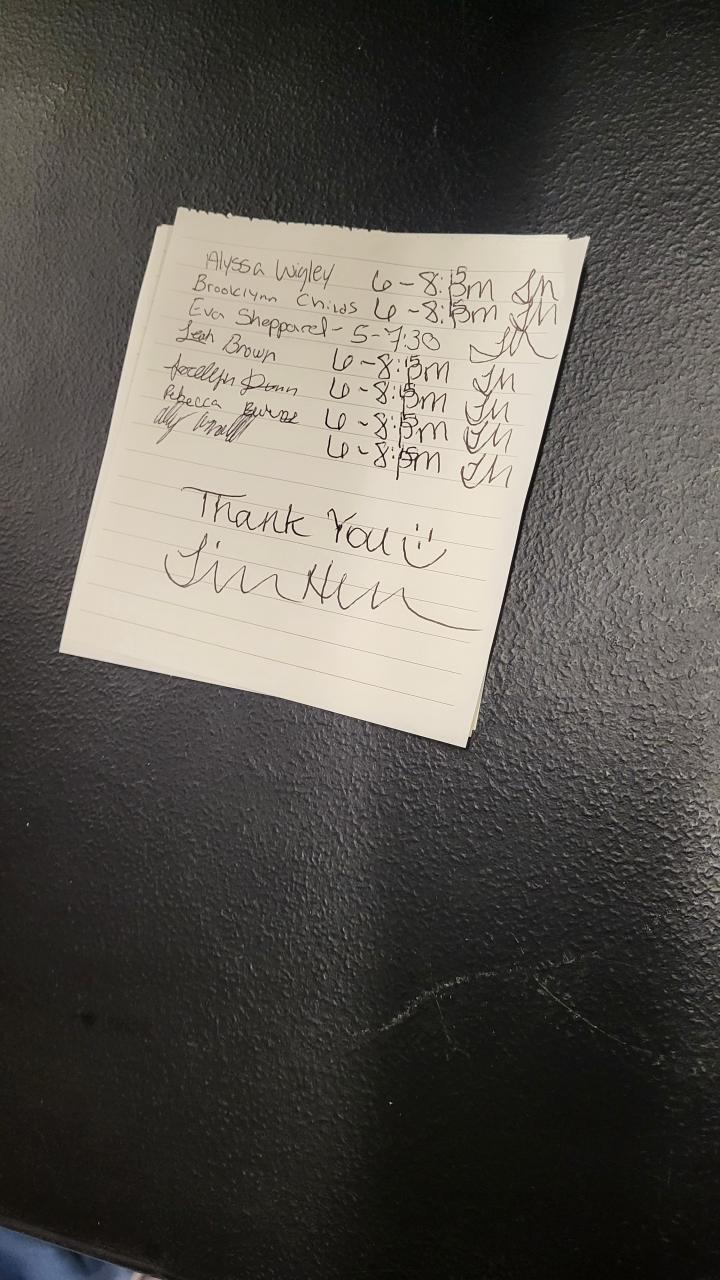 Alyssa Wigley 6-8:15pm JN
Brooklynn Childs 6-8:15pm JN
Eva Sheppard - 5-7:30
Leah Brown 6-8:15pm JN
Jocelyn Dunn 6-8:15pm JN
Rebecca 6-8:15pm JN
6-8:15pm JN
Thank You :)